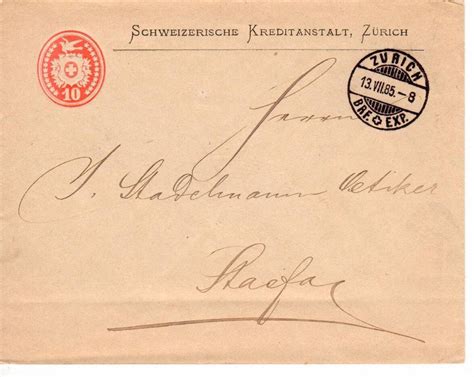 SCHWEIZERISCHE KREDITANSTALT, ZÜRICH
10
ZÜRICH
13.VII.85.–8
BRF. EXP.
Herrn
J. Stadelmann Oetiker
Staefa